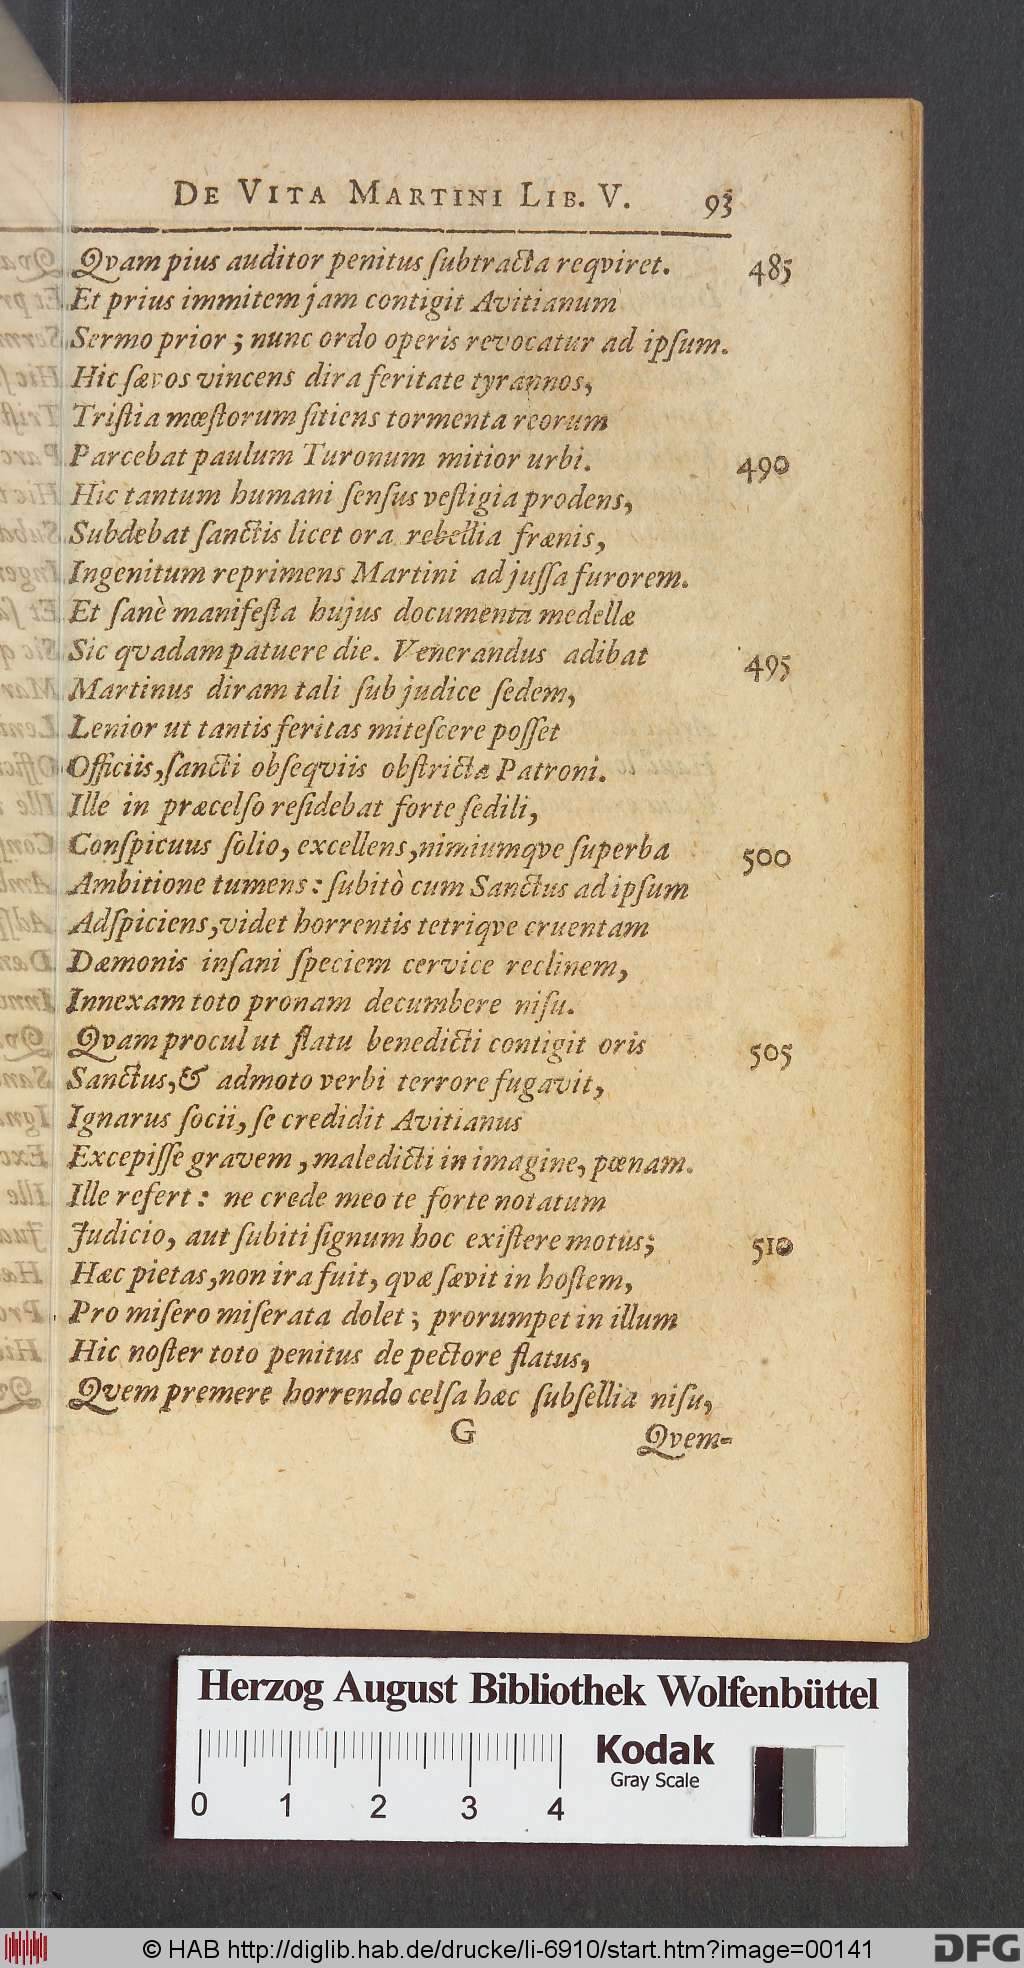 DE VITA MARTINI LIB. V. 93
Qvam pius auditor penitus ſubtracta reqviret. 485
Et prius immitem jam contigit Avitianum
Sermo prior; nunc ordo operis revocatur ad ipſum.
Hic ſævos vincens dira feritate tyrannos,
Triſtia mœſtorum ſitiens tormenta reorum
Parcebat paulum Turonum mitior urbi. 490
Hic tantum humani ſenſus veſtigia prodens,
Subdebat ſanctis licet ora rebellia frænis,
Ingenitum reprimens Martini ad juſſa furorem.
Et ſanè manifeſta hujus documenta medellæ
Sic qvadam patuere die. Venerandus adibat 495
Martinus diram tali ſub judice ſedem,
Lenior ut tantis feritas miteſcere poſſet
Officiis, ſancti obſeqviis obſtricta Patroni.
Ille in præcelſo reſidebat forte ſedili,
Conſpicuus ſolio, excellens, nimiumqve ſuperba 500
Ambitione tumens: ſubitò cum Sanctus ad ipſum
Adſpiciens, videt horrentis tetriqve cruentam
Dæmonis inſani ſpeciem cervice reclinem,
Innexam toto pronam decumbere niſu.
Qvam procul ut flatu benedicti contigit oris 505
Sanctus, & admoto verbi terrore fugavit,
Ignarus ſocii, ſe credidit Avitianus
Excepiſſe gravem, maledicti in imagine, pœnam.
Ille refert: ne crede meo te forte notatum
Judicio, aut ſubiti ſignum hoc exiſtere motus; 510
Hæc pietas, non ira fuit, qvæ ſævit in hoſtem,
Pro miſero miſerata dolet; prorumpet in illum
Hic noſter toto penitus de pectore flatus,
Qvem premere horrendo celſa hæc ſubſellia niſu,
G Qvem-
Herzog August Bibliothek Wolfenbüttel
Kodak
Gray Scale
0 1 2 3 4
© HAB http://diglib.hab.de/drucke/li-6910/start.htm?image=00141
DFG